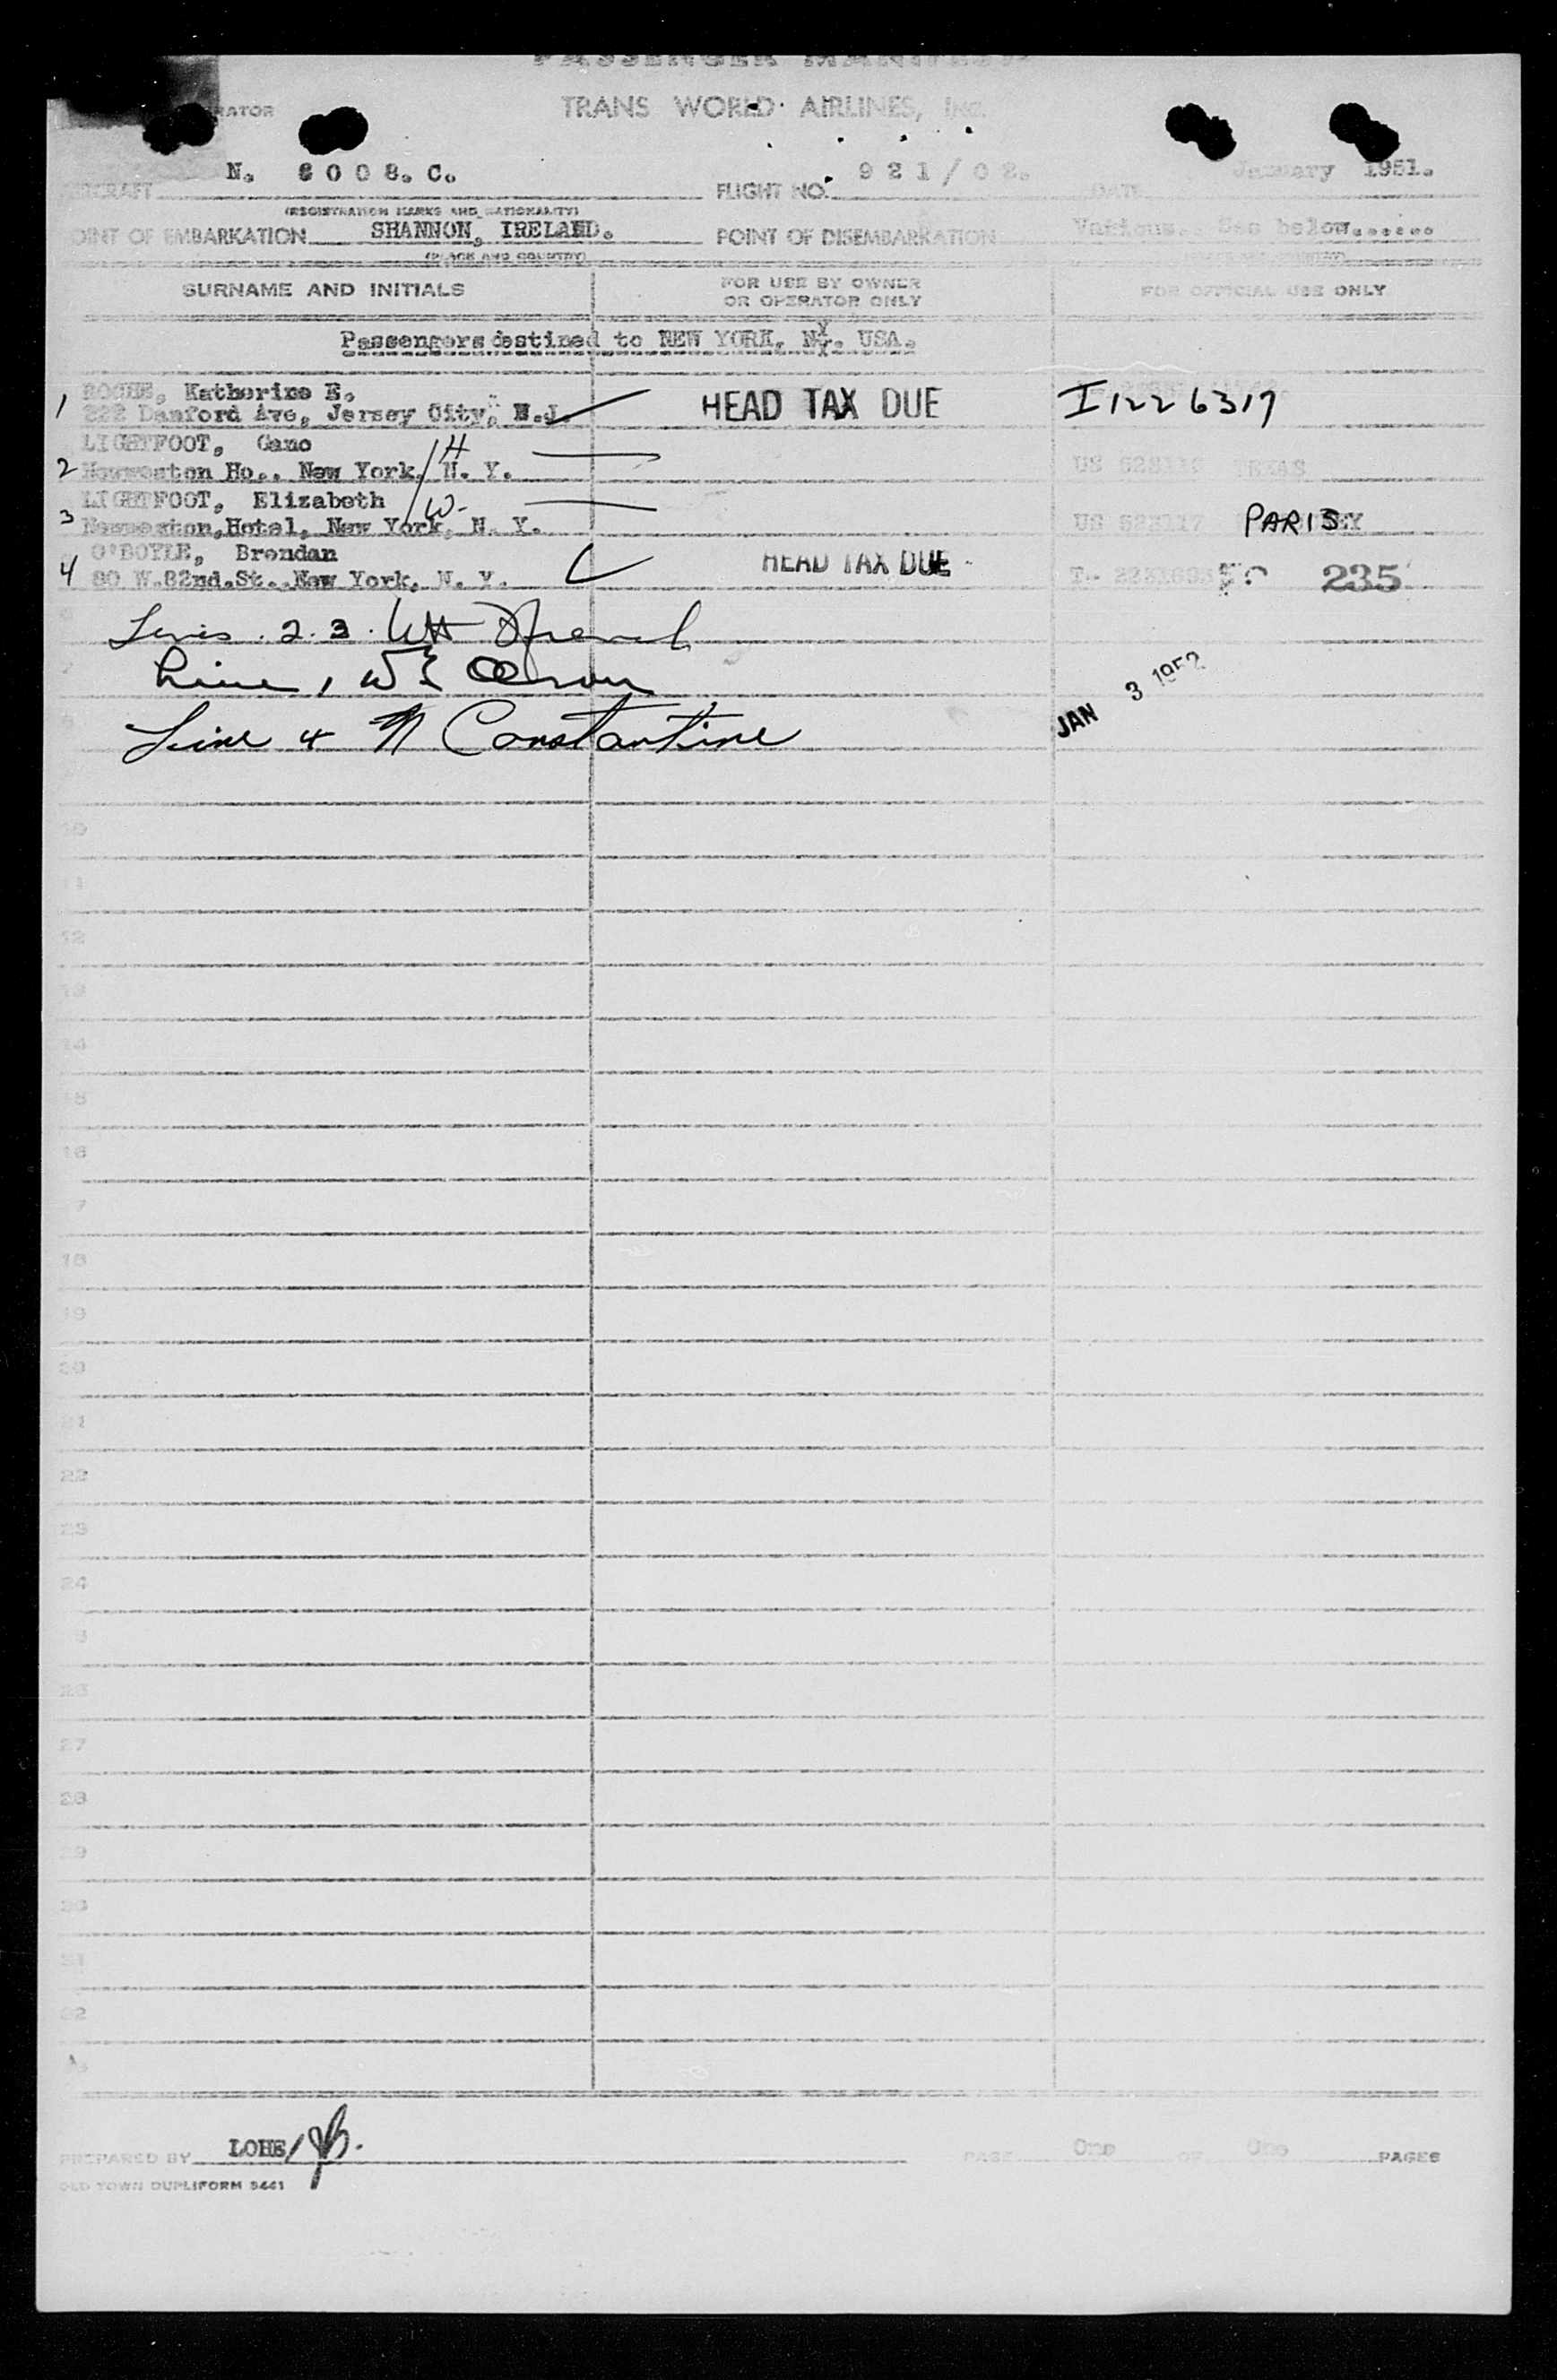 PASSENGER MANIFEST
TRANS WORLD AIRLINES, INC.
N. 6008. C. FLIGHT NO. 921/02. DATE January 1951.
(REGISTRATION MARKS AND NATIONALITY)
POINT OF EMBARKATION SHANNON, IRELAND. POINT OF DISEMBARKATION Various. See below......
(PLACE AND COUNTRY)
SURNAME AND INITIALS FOR USE BY OWNER OR OPERATOR ONLY FOR OFFICIAL USE ONLY
Passengers destined to NEW YORK, N.Y. USA.
1 Katherine E.
222 Danford Ave, Jersey City, N.J. HEAD TAX DUE I1226317
LIGHTFOOT, Gano H
2 Ho., New York, N. Y. US TEXAS
LIGHTFOOT, Elizabeth W-
3 Hotel, New York, N. Y. US PARIS
O'BOYLE, Brendan
4 80 W.82nd.St., New York, N. Y. HEAD TAX DUE 235
2. 3.
Line 1
Line 4 N Constantine
JAN 3 1952
10
11
12
13
14
15
16
7
18
19
20
21
22
23
24
5
26
27
28
29
30
31
32
PREPARED BY LOHE/ PAGE One OF One PAGES
OLD TOWN DUPLIFORM 5441